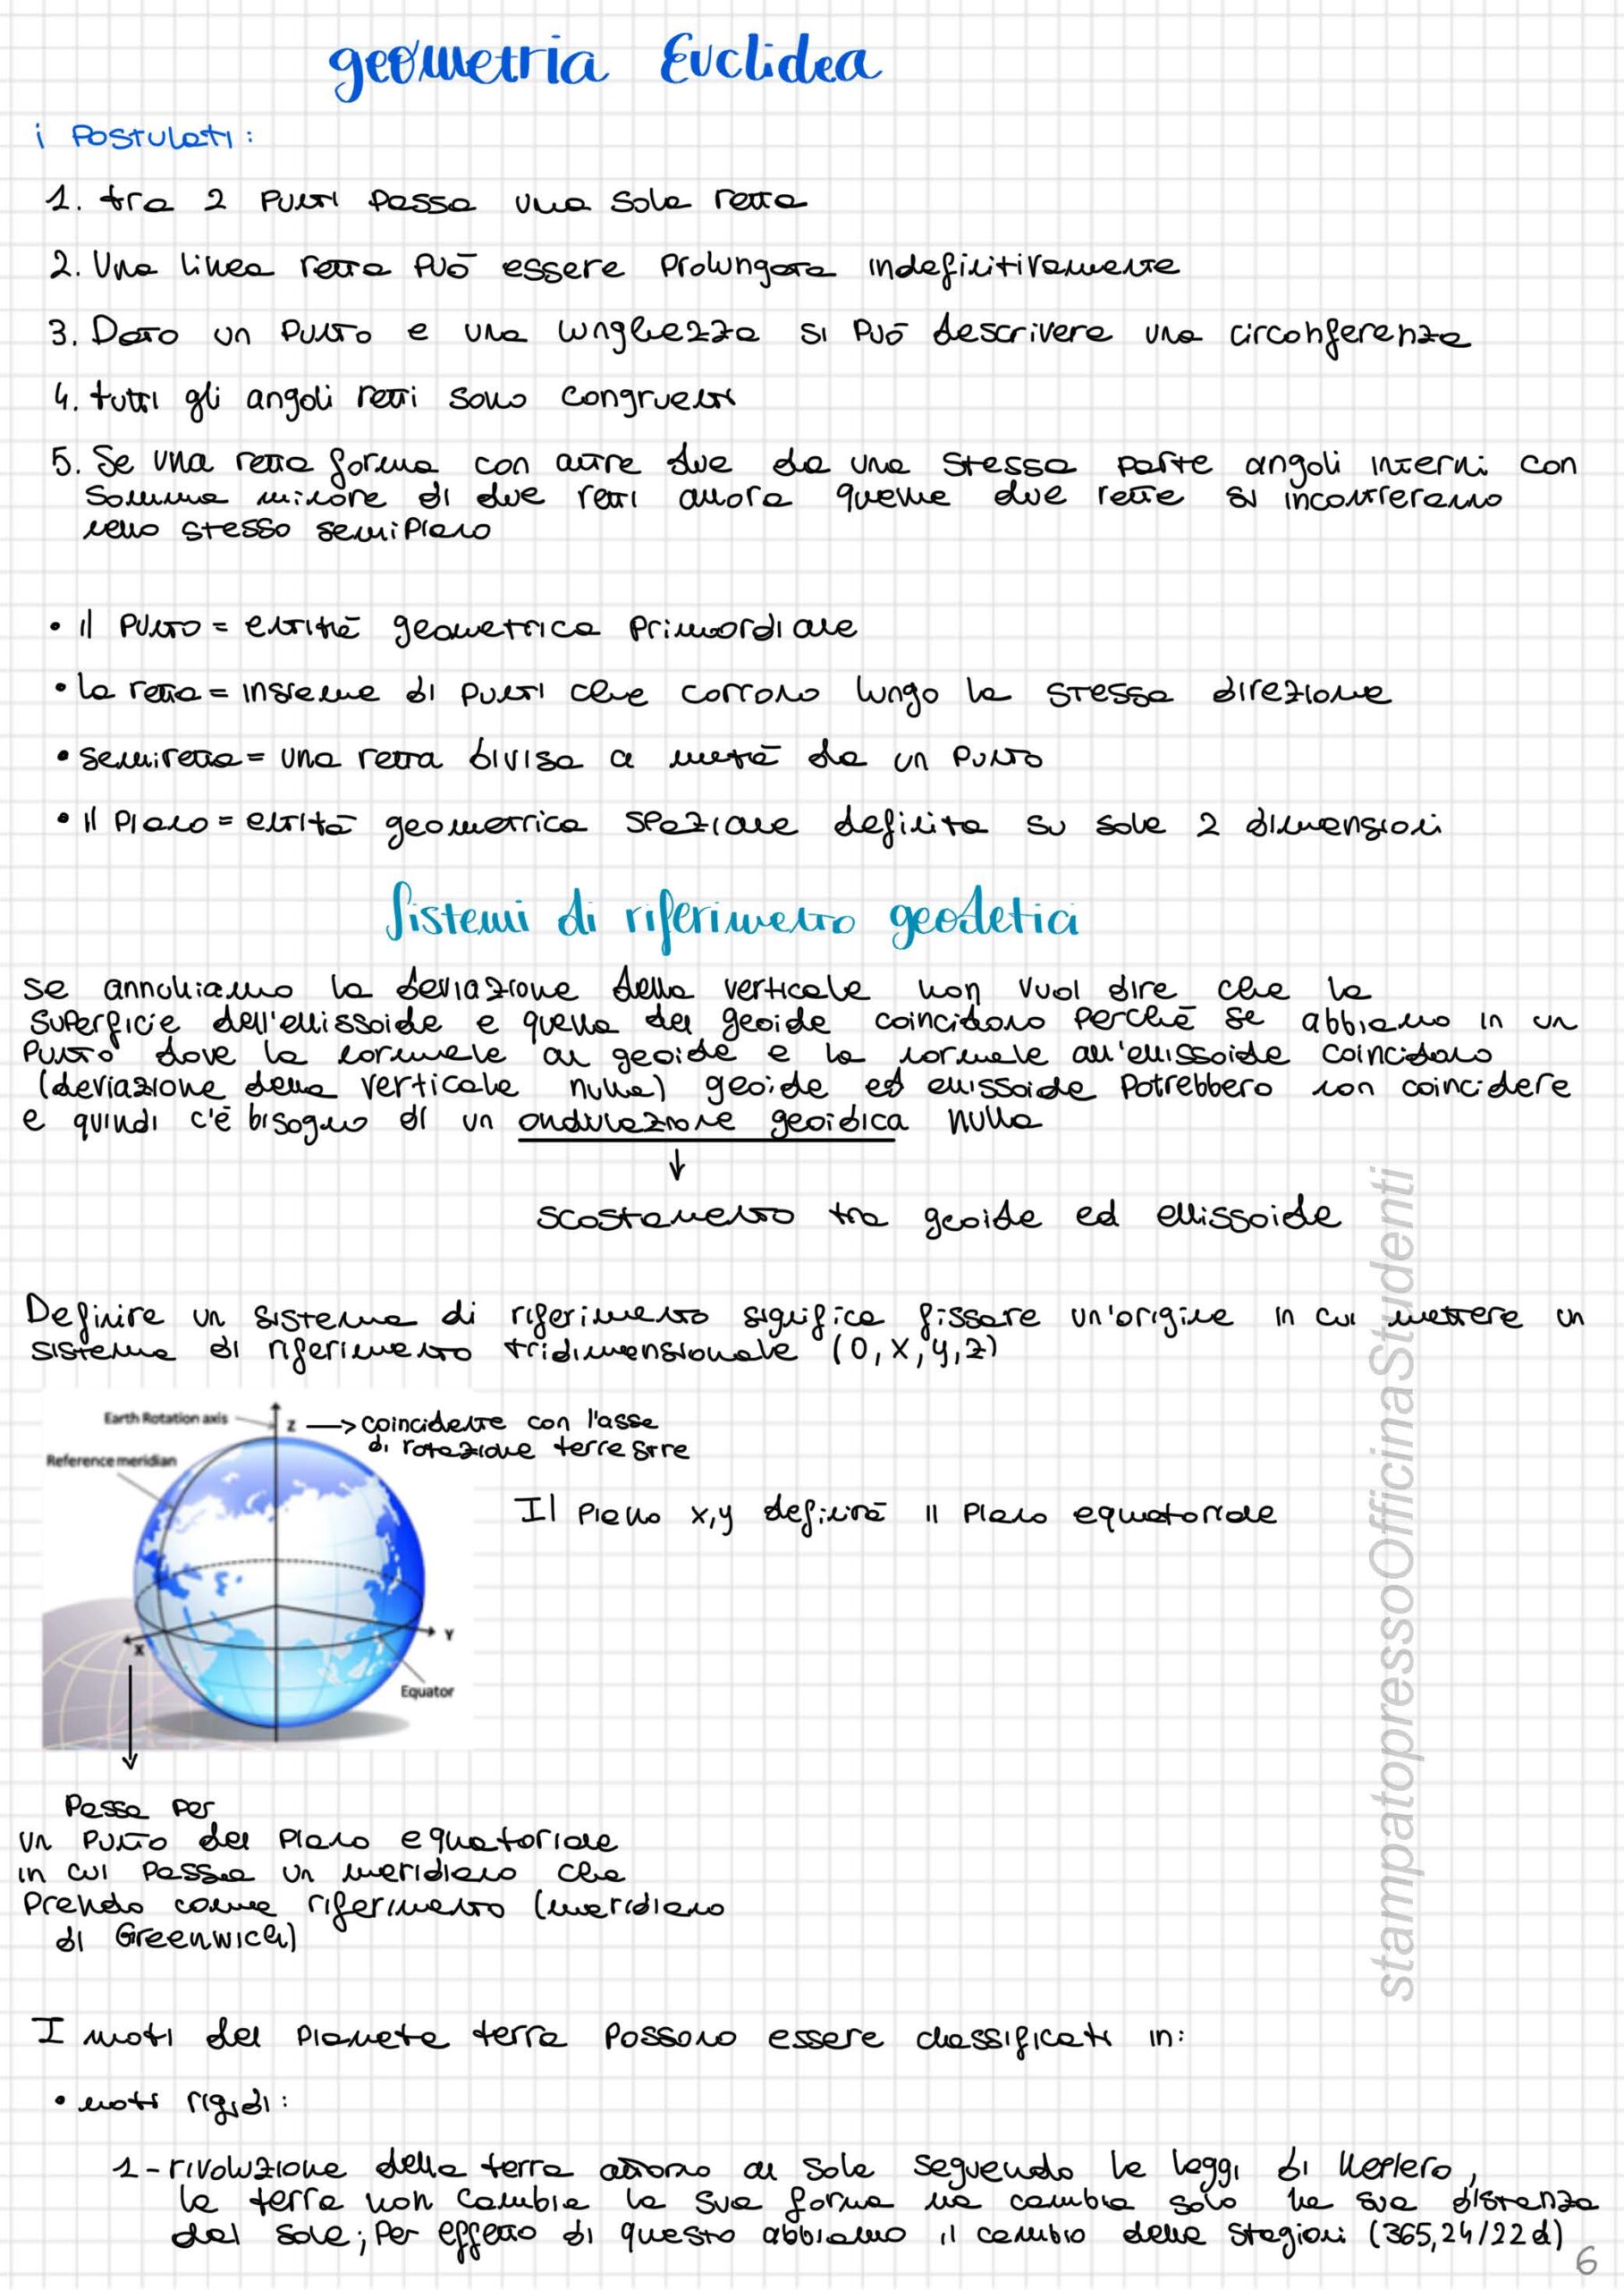 geometria Euclidea
i Postulati:
1. tra 2 punti passa una sola retta
2. Una linea retta può essere prolungata indefinitivamente
3. Dato un punto e una lunghezza si può descrivere una circonferenza
4. tutti gli angoli retti sono congruenti
5. Se una retta forma con altre due da una stessa parte angoli interni con
somma minore di due retti allora quelle due rette si incontreranno
nello stesso semipiano
• il punto = entità geometrica primordiale
• la retta = insieme di punti che corrono lungo la stessa direzione
• semiretta = una retta divisa a metà da un punto
• il piano = entità geometrica spaziale definita su sole 2 dimensioni
Sistemi di riferimento geodetici
se annulliamo la deviazione della verticale non vuol dire che la
superficie dell'ellissoide e quella del geoide coincidono perché se abbiamo in un
punto dove la normale al geoide e la normale all'ellissoide coincidono
(deviazione della verticale nulla) geoide ed ellissoide potrebbero non coincidere
e quindi c'è bisogno di un ondulazione geoidica nulla
↓
scostamento tra geoide ed ellissoide
Definire un sistema di riferimento significa fissare un'origine in cui mettere un
sistema di riferimento tridimensionale (O,x,y,z)
Earth Rotation axis
Z → coincidente con l'asse
di rotazione terrestre
Reference meridian
Il piano x,y definirà il piano equatoriale
Y
X
Equator
Passa per
un punto del piano equatoriale
in cui passa un meridiano che
prendo come riferimento (meridiano
di Greenwich)
I moti del pianeta terra possono essere classificati in:
• moti rigidi:
1 - rivoluzione della terra attorno al sole seguendo le leggi di Keplero,
la terra non cambia la sua forma ma cambia solo la sua distanza
dal sole; per effetto di questo abbiamo il cambio delle stagioni (365,24/22 d)
6
stampatopressoOfficinaStudenti